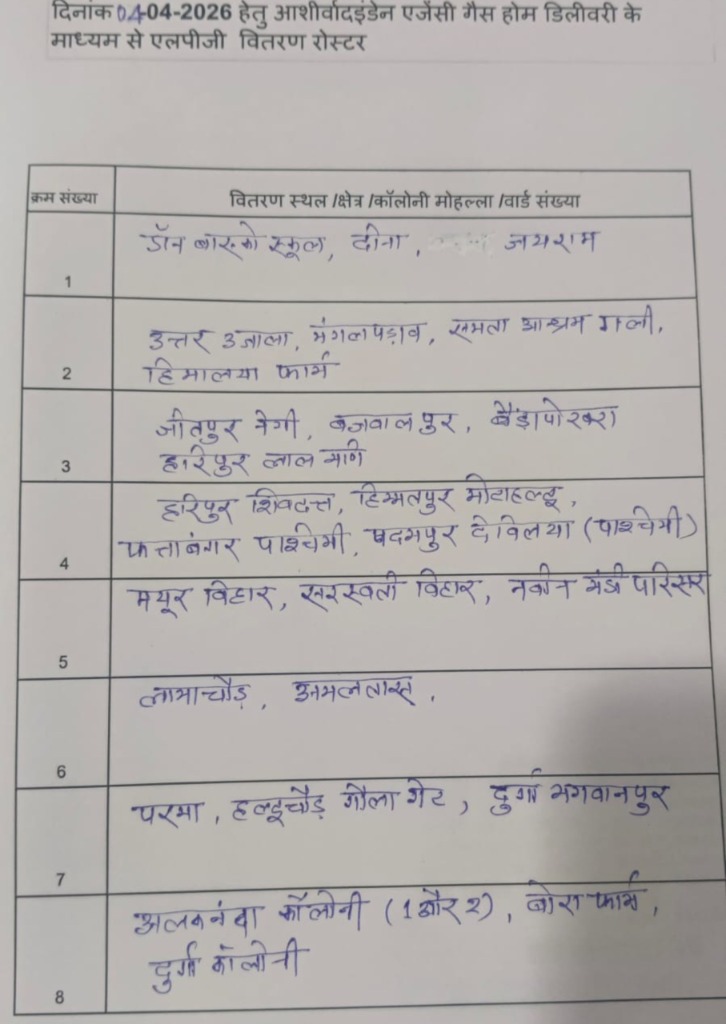 दिनांक 04-04-2026 हेतु आशीर्वादइंडेन एजेंसी गैस होम डिलीवरी के
माध्यम से एलपीजी वितरण रोस्टर
क्रम संख्या वितरण स्थल /क्षेत्र /कॉलोनी मोहल्ला /वार्ड संख्या
डॉन बास्को स्कूल, दीना, जयराम
1
उत्तर उजाला, मंगलपड़ाव, समता आश्रम गली,
2 हिमालया फार्म
जीतपुर नेगी, बजवालपुर,
3 हरिपुर लाल मणि
हरिपुर शिवदत्त, हिम्मतपुर मोटाहल्दू,
फत्ताबंगर पाश्चिमी, पदमपुर देवलिया (पाश्चिमी)
4
मयूर विहार, सरस्वती विहार, नवीन मंडी परिसर
5
लामाचौड़, अमलतास,
6
परमा, हल्दूचौड़ गौला गेट, दुर्गा भगवानपुर
7
अलकनंदा कॉलोनी (1 और 2), बोरा फार्म,
दुर्गा कॉलोनी
8